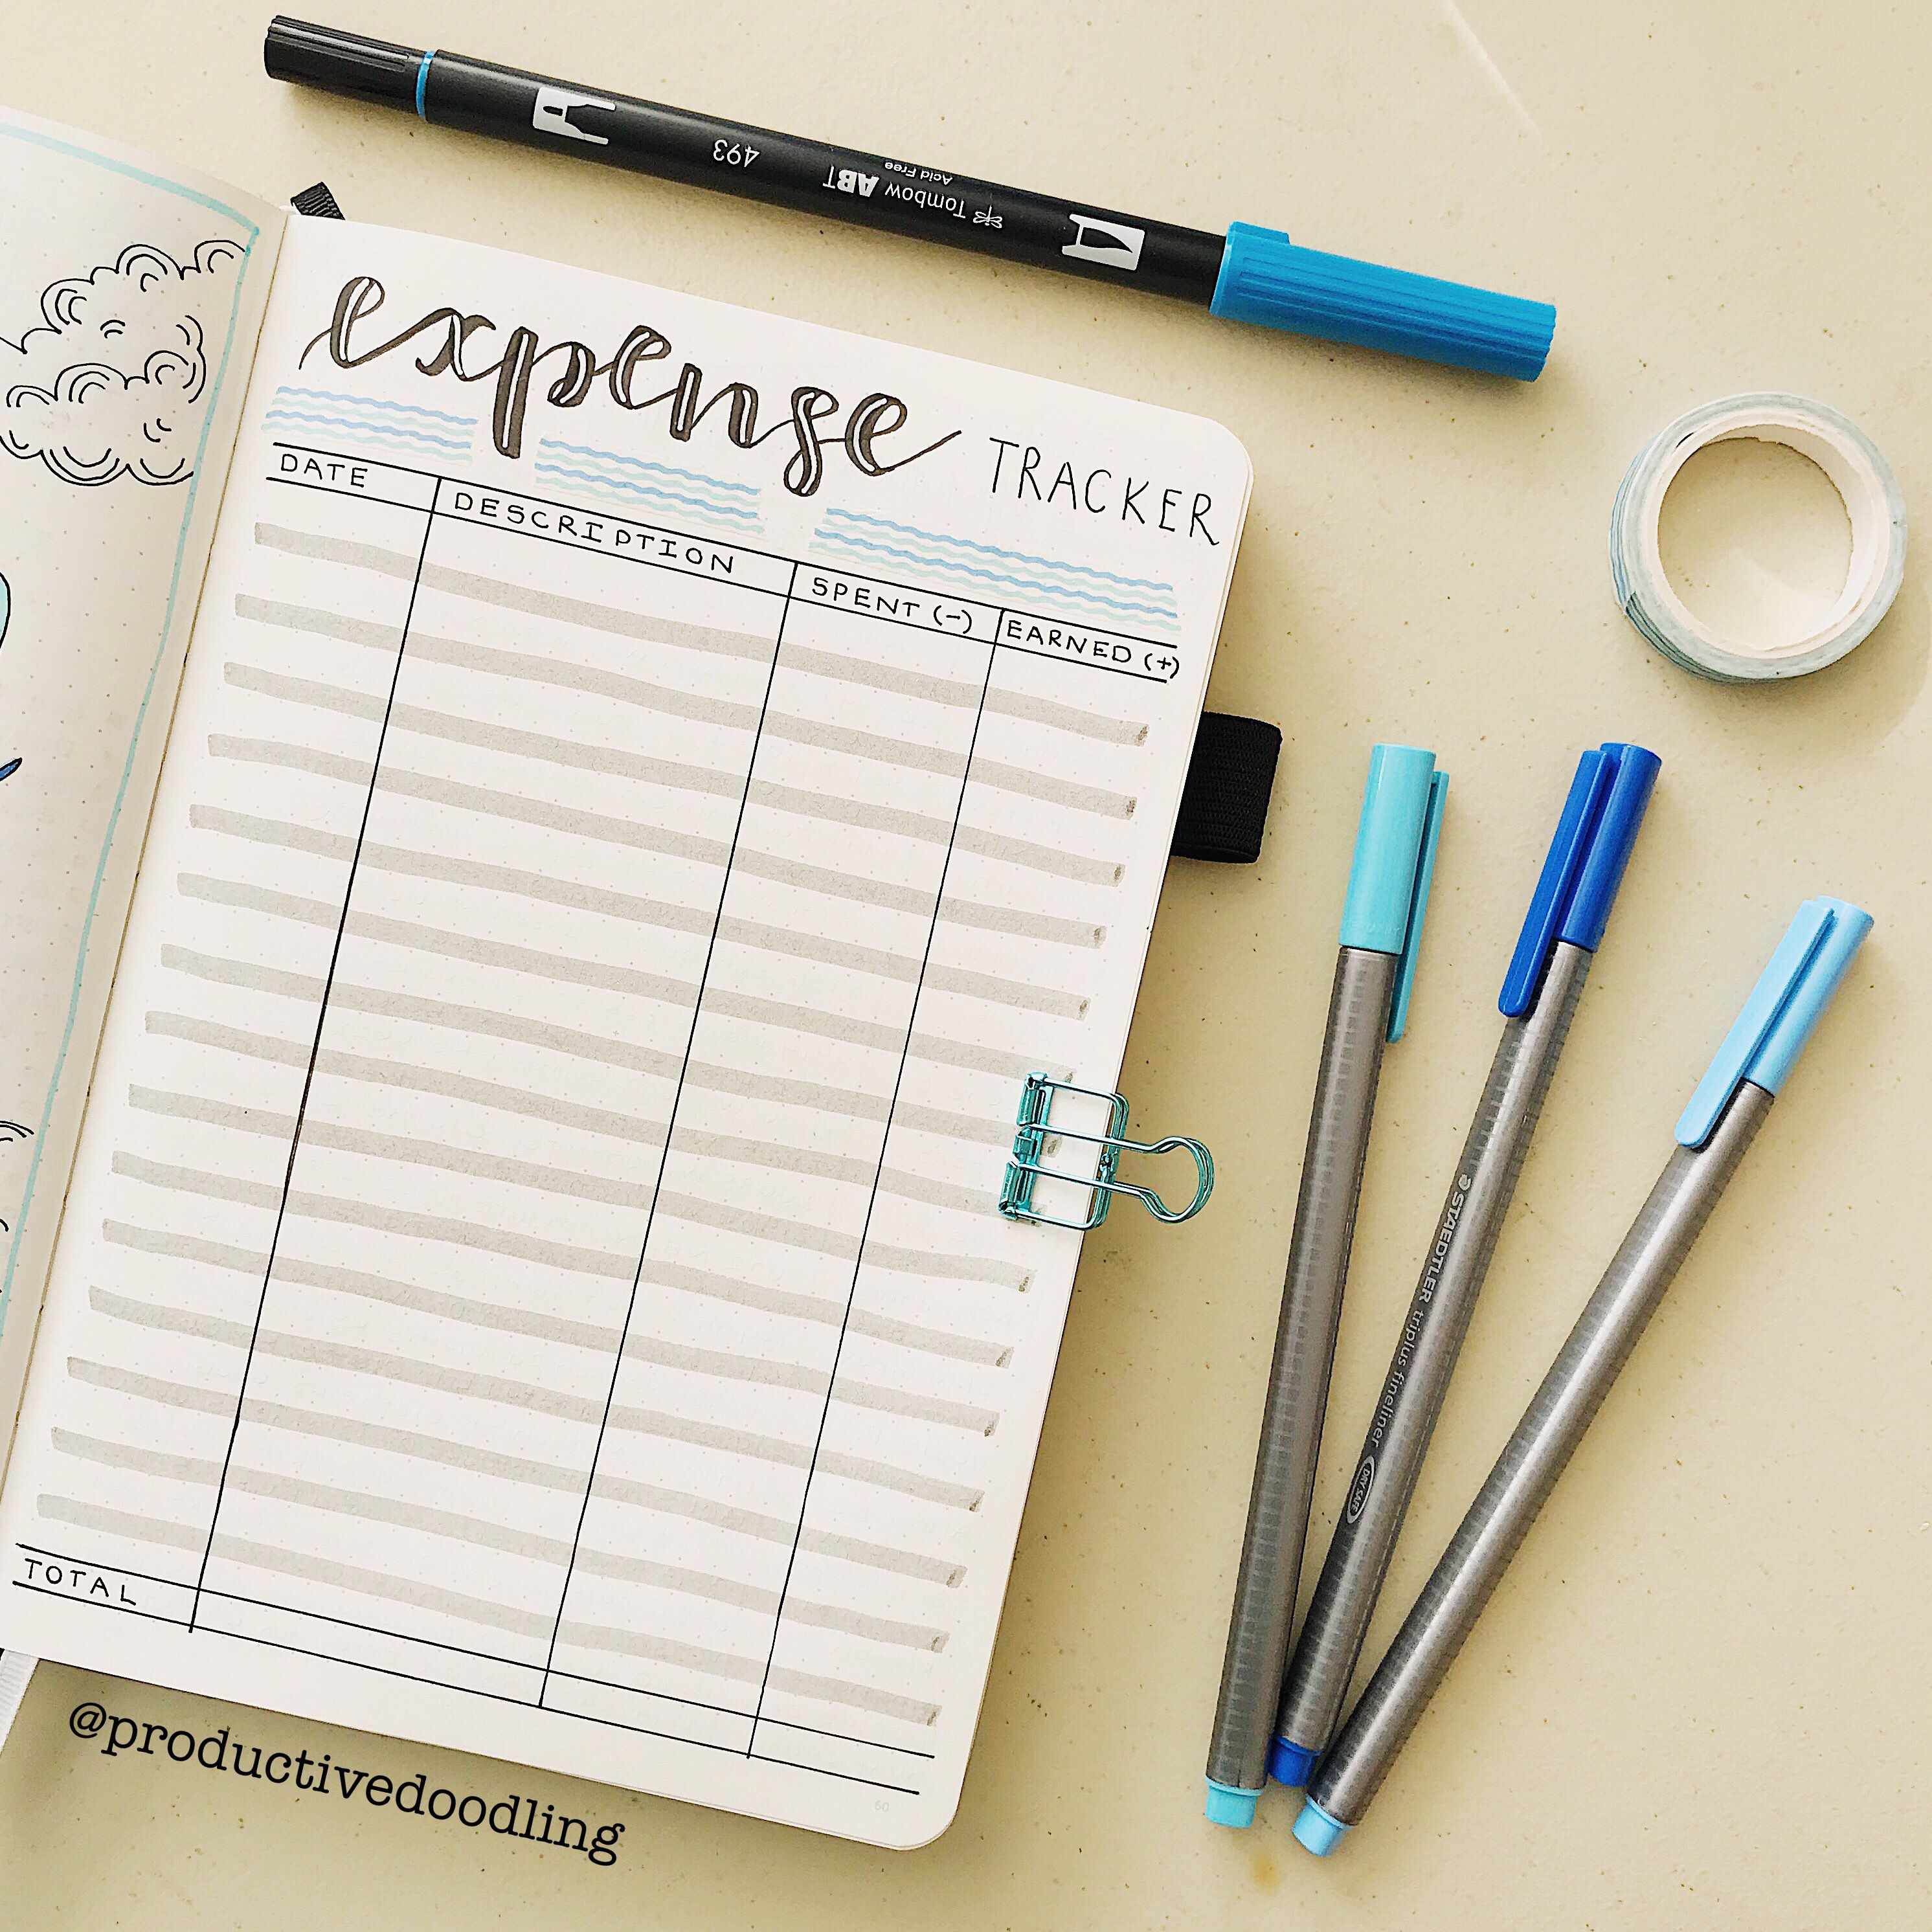 493
Tombow ABT
Acid Free
expense TRACKER
DATE
DESCRIPTION
SPENT (-)
EARNED (+)
TOTAL
60
STAEDTLER triplus fineliner
DRY SAFE
@productivedoodling